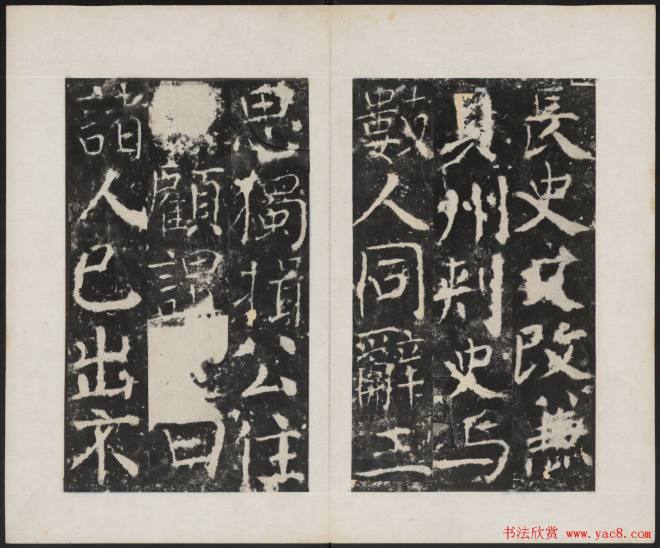 長史又改兼
貝州刺史与
數人同辭上
思獨揖公住
顧謂曰
諸人已出不
书法欣赏 www.yac8.com